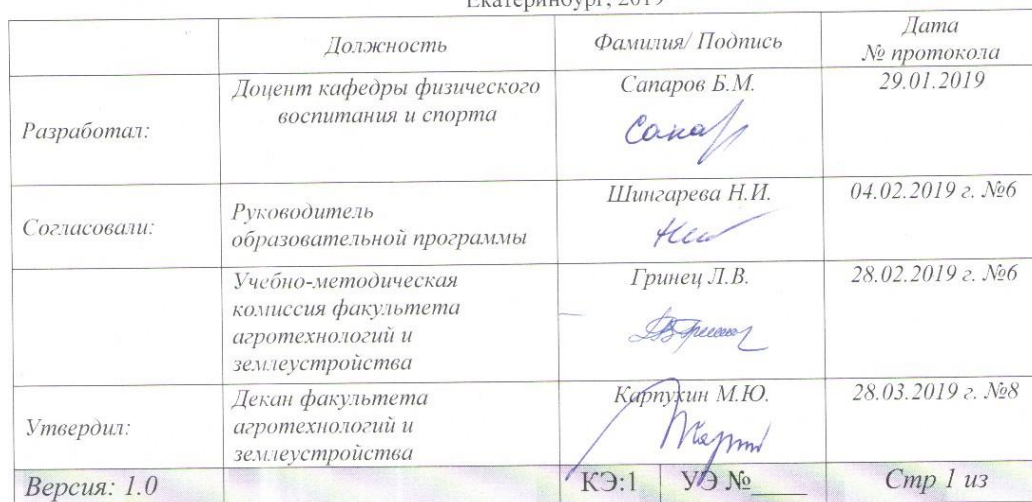 Екатеринбург, 2019
Должность Фамилия/ Подпись Дата
№ протокола
Разработал: Доцент кафедры физического воспитания и спорта Сапаров Б.М. 29.01.2019
Согласовали: Руководитель образовательной программы Шингарева Н.И. 04.02.2019 г. №6
Учебно-методическая
комиссия факультета
агротехнологий и
землеустройства
Гринец Л.В. 28.02.2019 г. №6
Утвердил: Декан факультета
агротехнологий и
землеустройства
Карпухин М.Ю. 28.03.2019 г. №8
Версия: 1.0 КЭ:1 УЭ №____ Стр 1 из